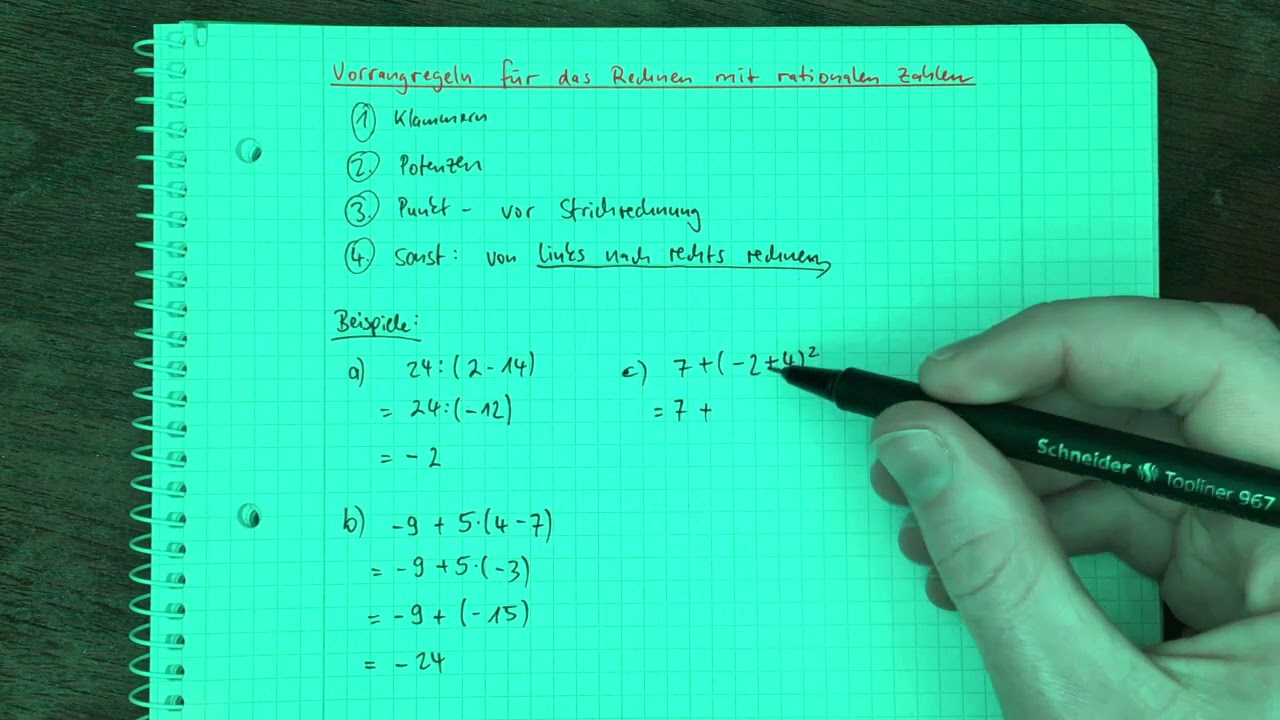 Vorrangregeln für das Rechnen mit rationalen Zahlen
1 Klammern
2. Potenzen
3. Punkt- vor Strichrechnung
4. Sonst: von links nach rechts rechnen
Beispiele:
a) 24:(2-14)
= 24:(-12)
= -2
b) -9 + 5·(4-7)
= -9 + 5·(-3)
= -9 + (-15)
= -24
c) 7+(-2+4)²
= 7 +
Schneider Topliner 967